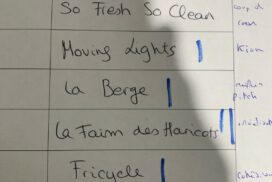 So Fresh So Clean
coup de coeur
Moving Lights |
Kiam
La Berge |
pitch
La Faim des Haricots ||
Fricycle |